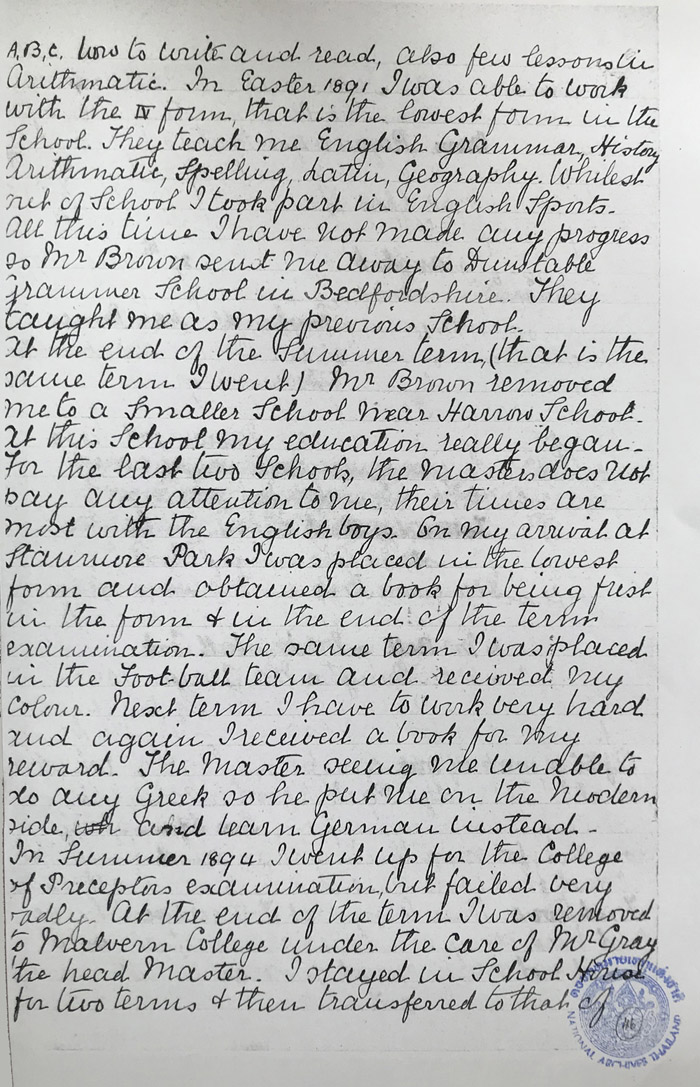 A.B.C. how to write and read, also few lessons in
Arithmatic. In Easter 1891 I was able to work
with the IV form, that is the lowest form in the
School. They teach me English Grammar, History
Arithmatic, Spelling, Latin, Geography. Whilest
out of School I took part in English Sports.
All this time I have not made any progress
so Mr Brown send me away to Dunstable
Grammer School in Bedfordshire. They
taught me as my previous School.
At the end of the Summer term, (that is the
same term I went) Mr Brown removed
me to a Smaller School near Harrow School.
At this School my education really began.
For the last two Schools, the Masters does not
pay any attention to me, their times are
most with the English boys. On my arrival at
Stanmore Park I was placed in the lowest
form and obtained a book for being first
in the form & in the end of the term
examination. The same term I was placed
in the Foot-ball team and received my
colour. Next term I have to work very hard
and again I received a book for my
reward. The Master seeing me unable to
do any Greek so he put me on the Modern
side, and learn German instead.
In Summer 1894 I went up for the College
of Preceptors examination, but failed very
badly. At the end of the term I was removed
to Malvern College under the care of Mr Gray
the head Master. I stayed in School House
for two terms & then transferred to that of
NATIONAL ARCHIVES THAILAND